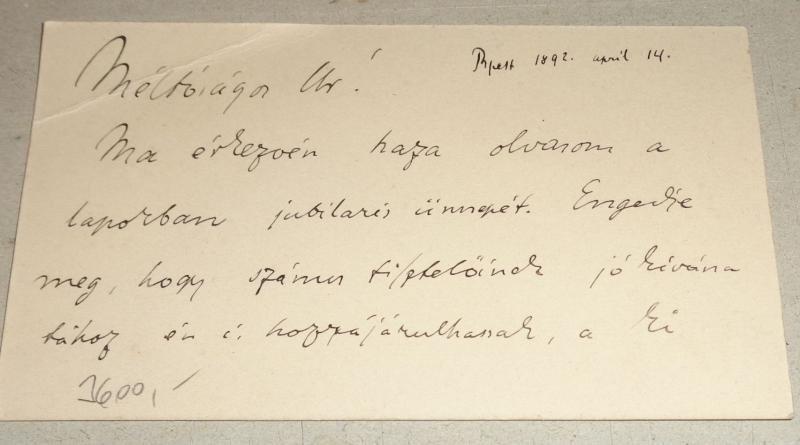 Bpest 1892. april 14.
Méltóságos Ur!
Ma érkezvén haza olvasom a
lapokban jubilaris ünnepét. Engedje
meg, hogy számos tisztelőinek jó kívána
tához én is hozzájárulhassak, a ki
3600,-